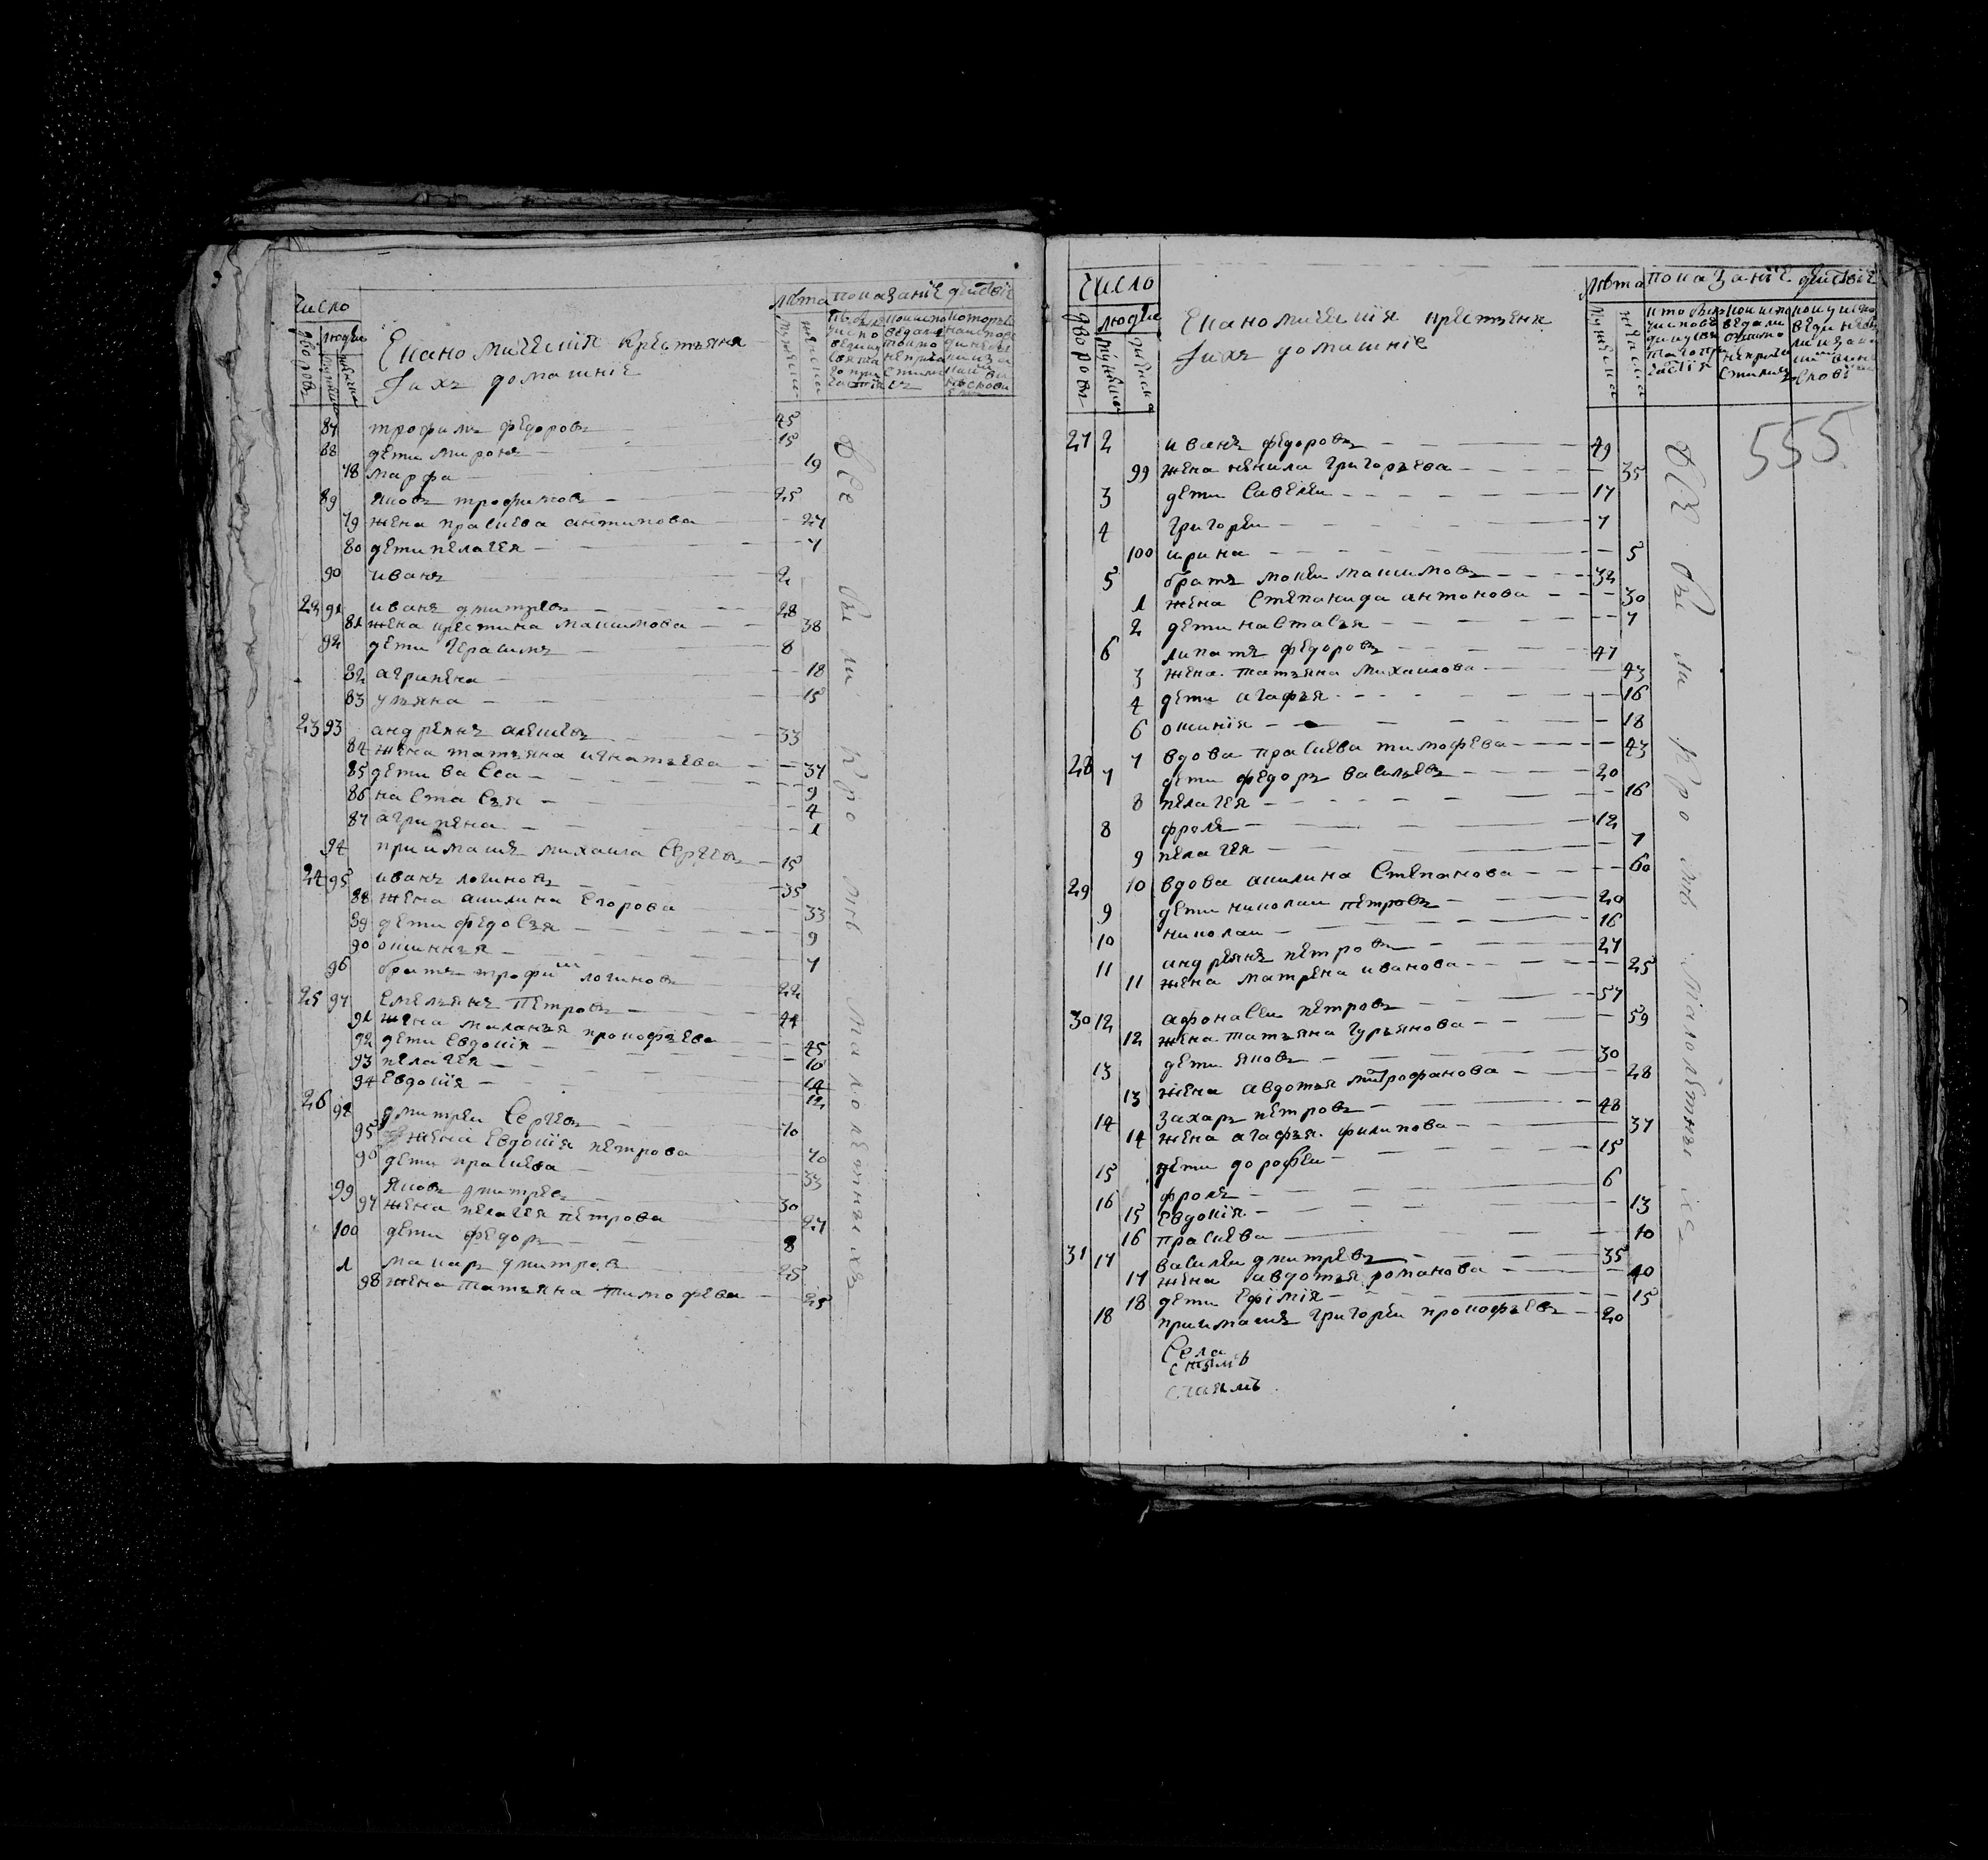 число
лѣта показанїе дѣйствїе
дворовъ
людеи
мужеска
женска
Економическїя крестьяня
и ихъ домашнїе
87 трофимъ федоровъ 45
88 дети миронъ 15
78 марфа 19
89 яковъ трофимовъ 25
79 жена прасцева антипова 27
80 дети пелагея 7
90 иванъ 2
22 91 иванъ дмитревъ 28
81 жена крестина макимова 38
92 дети герасимъ 8
82 агрипена 18
83 ульяна 15
23 93 андреянъ алешевъ 33
84 жена татьяна игнатьева 37
85 дети васса 9
86 настасья 4
87 агрипена 1
94 приимашъ михаила сергевъ 15
24 95 иванъ логиновъ 35
88 жена акилина егорова 33
89 дети федосья 9
90 окинья 7
96 братъ трофим логиновъ 22
25 97 емельянъ петровъ 44
91 жена маланья прокофьева 45
92 дети евдокїя 16
93 пелагея 14
94 евдокїя 12
26 98 дмитреи сергевъ 70
95 жена евдокїя петрова 70
96 дети прасцева 33
99 яковъ дмитревъ 30
97 жена пелагея петрова 27
100 дети федоръ 8
1 макаръ дмитровъ 25
98 жена татьяна тимофева 25
Все были кромѣ малолетныхъ
число
лѣта показанїе дѣйствїе
дворовъ
людеи
мужеска
женска
Економическїя крестьяня
и ихъ домашнїе
555
27 2 иванъ федоровъ 49
99 жена ненила григорьева 35
3 дети савелеи 17
4 григореи 7
100 ирина 5
5 братъ мокеи макимовъ 32
1 жена степанида антонова 30
2 дети настасья 7
6 липатъ федоровъ 47
3 жена татьяна михаилова 43
4 дети агафья 16
6 окинїя 18
28 7 вдова прасцева тимофева 43
7 дети федоръ васильевъ 20
8 пелагея 16
8 фролъ 12
9 пелагея 7
29 10 вдова акилина степанова 60
9 дети николаи петровъ 20
10 николаи 16
11 андреянъ петровъ 27
11 жена матрена иванова 25
30 12 афонасеи петровъ 57
12 жена татьяна гурьянова 59
13 дети яковъ 30
13 жена авдотья митрофанова 28
14 захаръ петровъ 48
14 жена агафья филипова 37
15 дети дорофеи 15
16 фролъ 6
15 евдокїя 13
16 прасцева 10
31 17 василеи дмитревъ 35
17 жена авдотья романова 40
18 дети ефїмїя 15
18 приимашъ григореи прокофьевъ 20
Села
Все были кромѣ